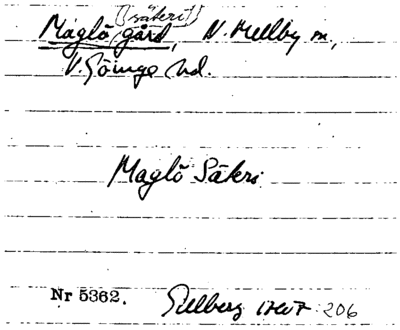 (säkeri)
Maglö gård, N. Mellby sn,
V. Göinge hd.
Maglö Säteri
Nr 5362. Gillberg 1767: 206